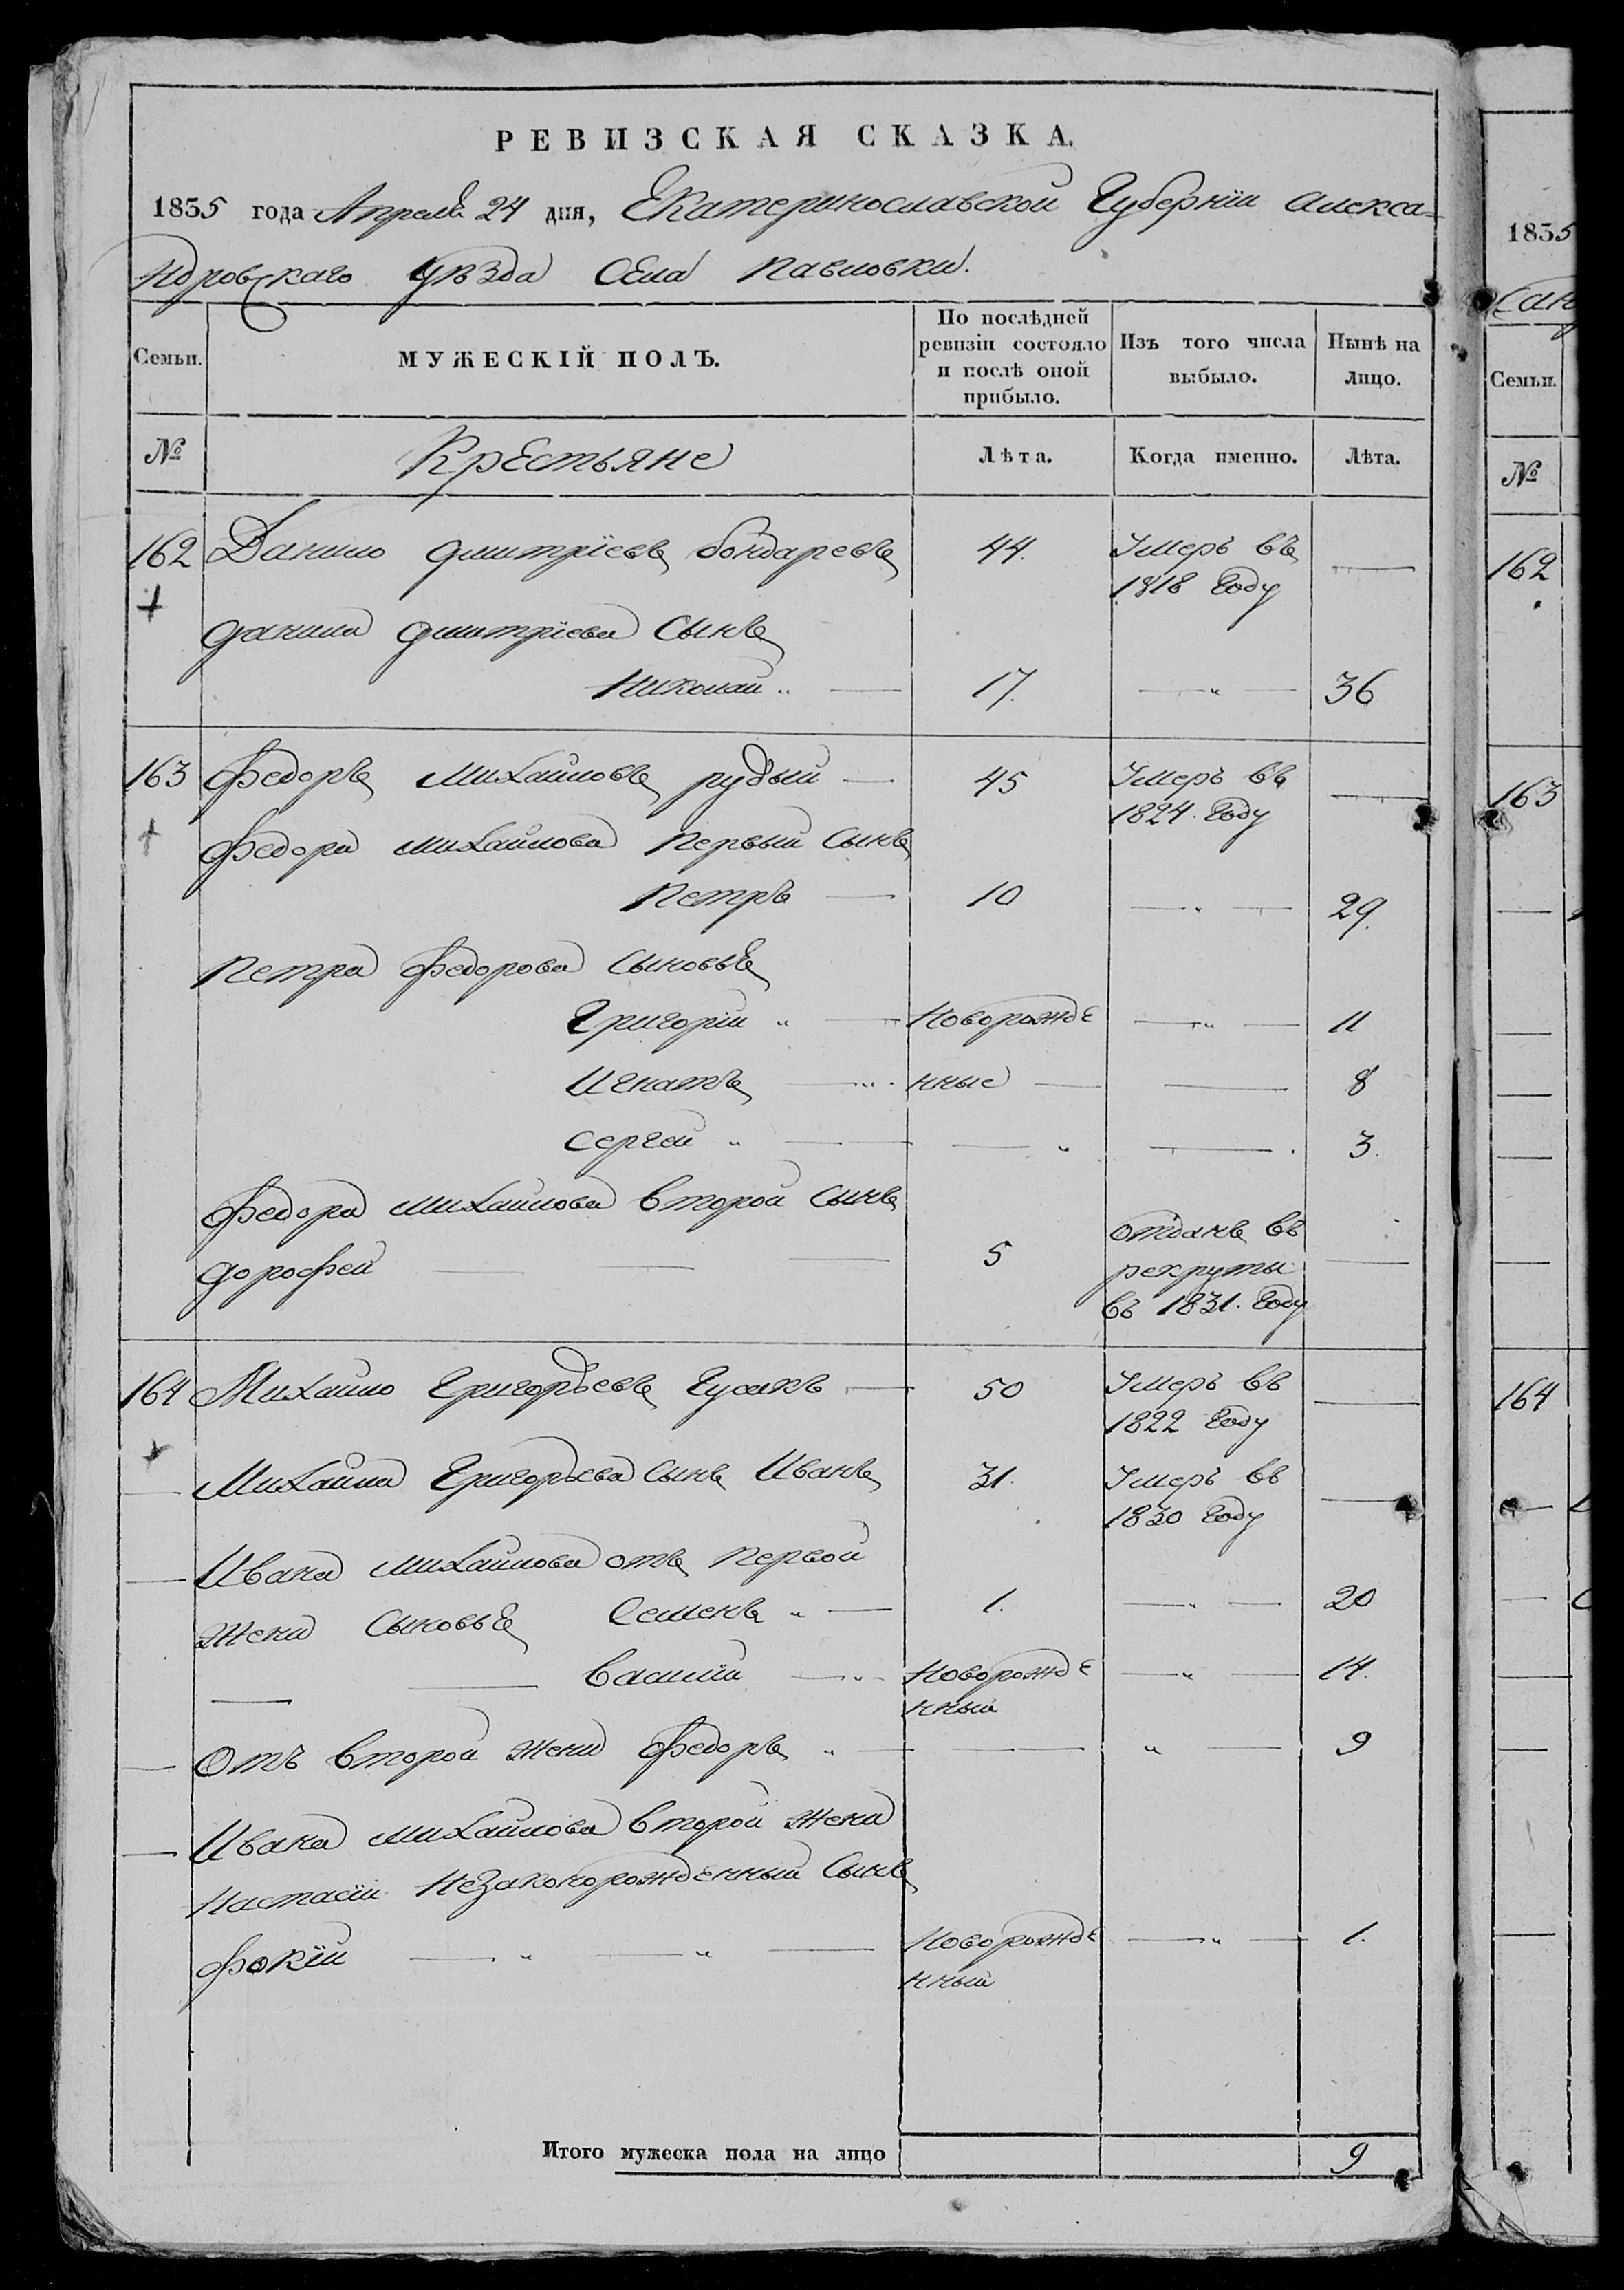 РЕВИЗСКАЯ СКАЗКА.
1835 года Апреля 24 дня, Екатеринославской Губернїи Алекса=
ндровскаго уѣзда Села Павловки.
Семьи. МУЖЕСКІЙ ПОЛЪ. По послѣдней ревизіи состояло и послѣ оной прибыло. Изъ того числа выбыло. Нынѣ на лицо.
№ Крестьяне Лѣта. Когда именно. Лѣта.
162 Данило Дмитрїевъ Бондаревъ 44. Умеръ въ —
1818 Году
Данила Дмитрїева Сынъ
Николай „ — 17. — „ — 36
163 Федоръ Михайловъ рудый — 45 Умеръ въ —
1824. Году
Федора Михайлова Первый Сынъ
Петръ — 10 — „ — 29.
Петра Федорова Сыновья
Григорїй „ — Новорожде — „ — 11
Игнатъ — „ нные — — 8
Сергей „ — — „ — 3.
Федора Михайлова Второй Сынъ
Дорофей — — — 5 отданъ въ —
рекруты
въ 1831. Году
164 Михайло Григорьевъ Гусакъ — 50 Умеръ въ —
1822 Году
— Михайла Григорьева Сынъ Иванъ 31. Умеръ въ —
1830 Году
— Ивана Михайлова отъ Первой
жены Сыновья Семенъ „ — 1. — „ — 20
— — Василїй — „ Новорожде — „ — 14.
нный
— Отъ Второй жены Федоръ „ — — „ — 9
— Ивана Михайлова Второй жены
Настасїи Незаконорожденный Сынъ
Фокїй — „ — „ — Новорожде — „ — 1.
нный
Итого мужеска пола на лицо 9
1835
Семьи.
№
162
163
164